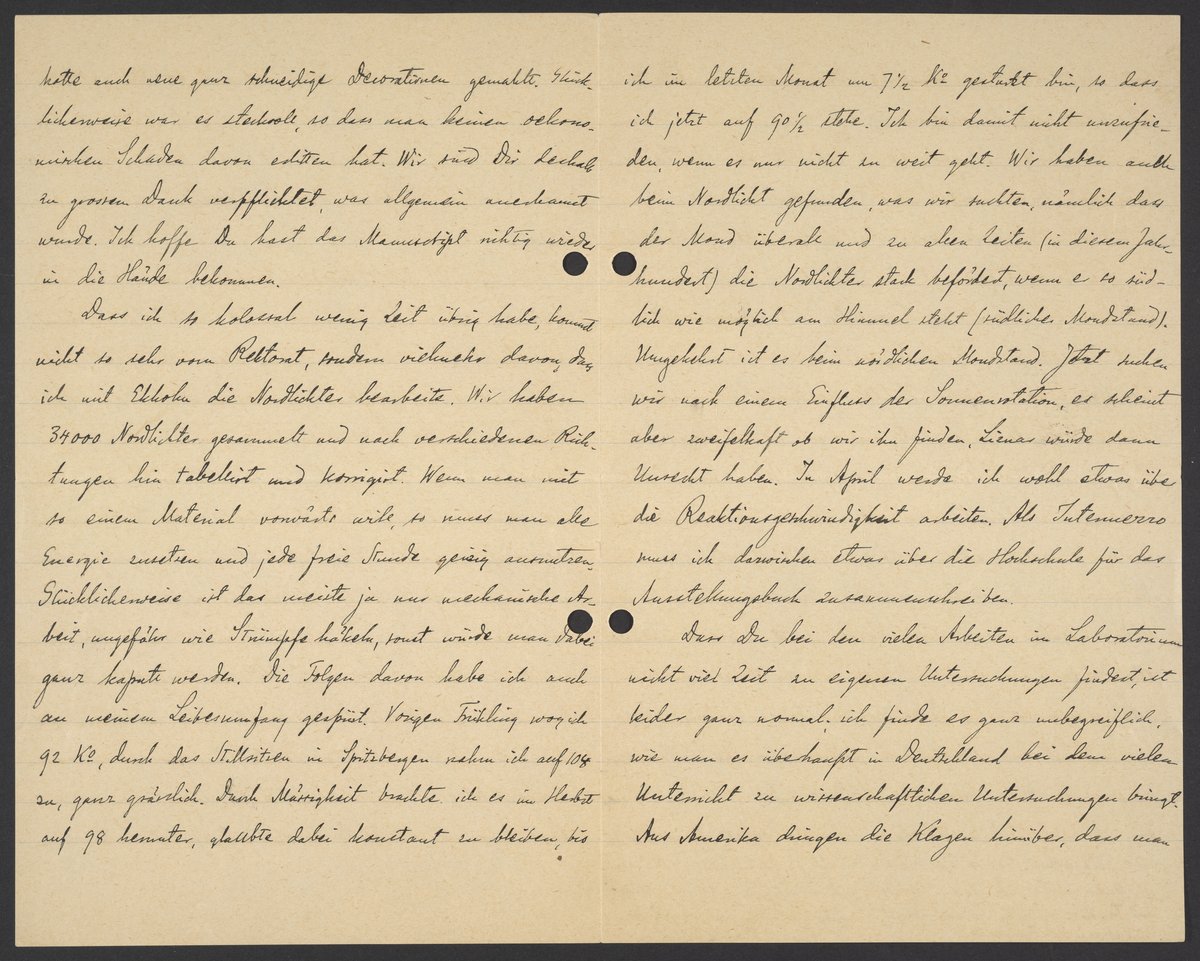 hatte auch neue ganz schneidige Decorationen gemalte. Glück-
licherweise war es steckvoll, so dass man keinen oekono-
mischen Schaden davon erlitten hat. Wir sind Dir deshalb
zu grossem Dank verpflichtet, was allgemein anerkannt
wurde. Ich hoffe Du hast das Manuscript richtig wieder
in die Hände bekommen.
Dass ich so kolossal wenig Zeit übrig habe, kommt
nicht so sehr vom Rektorat, sondern vielmehr davon, dass
ich mit Ekholm die Nordlichter bearbeite. Wir haben
34000 Nordlichter gesammelt und nach verschiedenen Rich-
tungen hin tabellirt und korrigirt. Wenn man mit
so einem Material vorwärts will, so muss man alle
Energie zusetzen und jede freie Stunde geizig ausnutzen.
Glücklicherweise ist das meiste ja nur mechanische Ar-
beit, ungefähr wie Strümpfe häkeln, sonst würde man dabei
ganz kaputt werden. Die Folgen davon habe ich auch
an meinem Leibesumfang gespürt. Vorigen Frühling wog ich
92 Ko, durch das Stillsitzen in Spitzbergen nahm ich auf 104
zu, ganz grässlich. Durch Mässigkeit brachte ich es im Herbst
auf 98 herunter, glaubte dabei konstant zu bleiben, bis
ich im letzten Monat um 7 1/2 Ko gestürzt bin, so dass
ich jetzt auf 90 1/2 stehe. Ich bin damit nicht unzufrie-
den, wenn es nur nicht zu weit geht. Wir haben auch
beim Nordlicht gefunden, was wir suchten, nämlich dass
der Mond überall und zu allen Zeiten (in diesem Jahr-
hundert) die Nordlichter stark befördert, wenn er so süd-
lich wie möglich am Himmel steht (südlicher Mondstand).
Umgekehrt ist es beim nördlichen Mondstand. Jetzt suchen
wir nach einem Einfluss der Sonnenrotation, es scheint
aber zweifelhaft ob wir ihn finden, würde dann
Unrecht haben. In April werde ich wohl etwas über
die Reaktionsgeschwindigkeit arbeiten. Als Intermezzo
muss ich dazwischen etwas über die Hochschule für das
Ausstellungsbuch zusammenschreiben.
Dass Du bei den vielen Arbeiten im Laboratorium
nicht viel Zeit zu eigenen Untersuchungen findest, ist
leider ganz normal; ich finde es ganz unbegreiflich,
wie man es überhaupt in Deutschland bei dem vielen
Unterricht zu wissenschaftlichen Untersuchungen bringt.
Aus Amerika dringen die Klagen hinüber, dass man